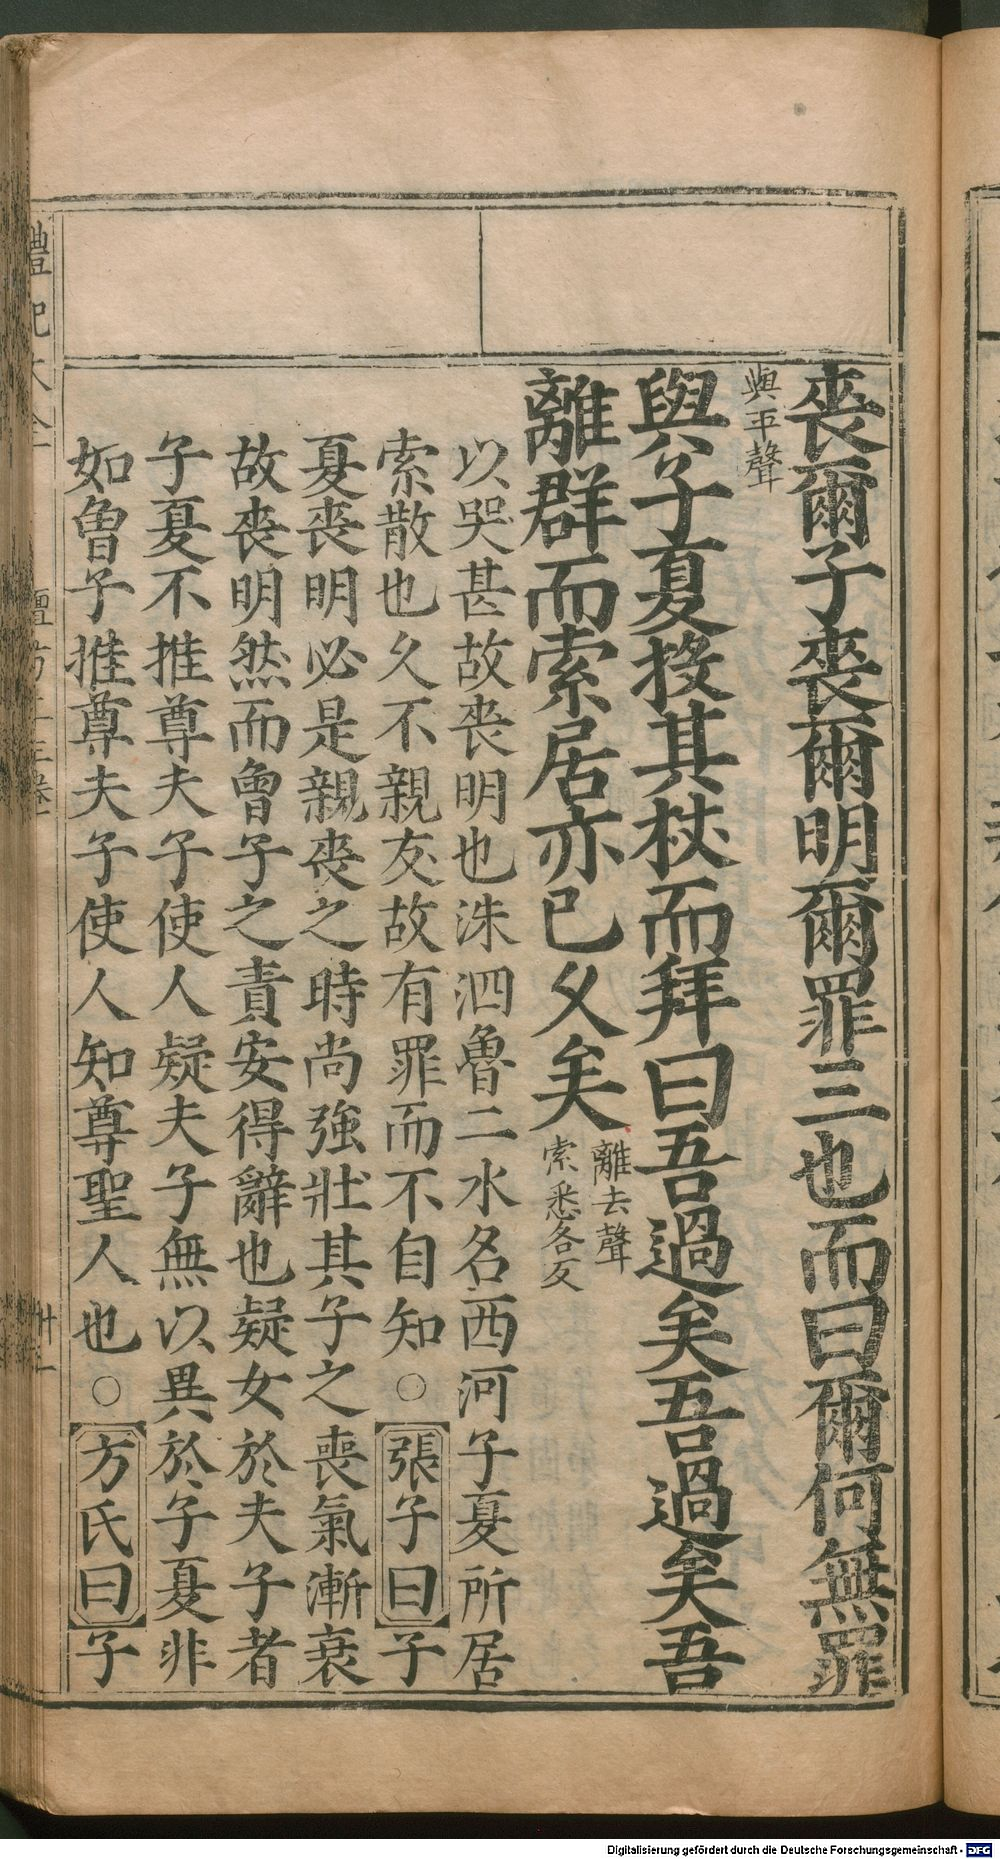 喪爾子喪爾明爾罪三也而曰爾何無罪
與平聲
與子夏投其杖而拜曰吾過矣吾過矣吾
離群而索居亦已久矣
離去聲
索悉各反
以哭甚故喪明也洙泗魯二水名西河子夏所居
索散也久不親友故有罪而不自知○張子曰子
夏喪明必是親喪之時尚強壯其子之喪氣漸衰
故喪明然而曾子之責安得辭也疑女於夫子者
子夏不推尊夫子使人疑夫子無以異於子夏非
如曾子推尊夫子使人知尊聖人也○方氏曰子
Digitalisierung gefördert durch die Deutsche Forschungsgemeinschaft - DFG